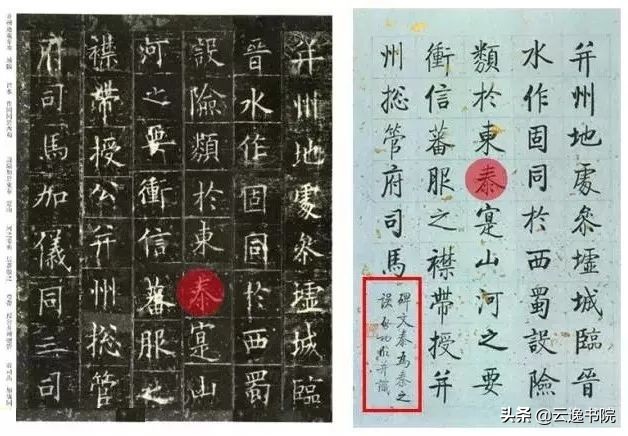 并州地處參墟城臨
晉水作固同於西蜀
設險類於東泰寔山
河之要衝信蕃服之
襟帶授公并州捴管
府司馬加儀同三司
并州地處參墟城臨晉
水作固同於西蜀設險
類於東泰寔山河之要
衝信蕃服之襟帶授并
州捴管府司馬
碑文泰為秦之
誤啟功臨并識
头条 @云逸书院